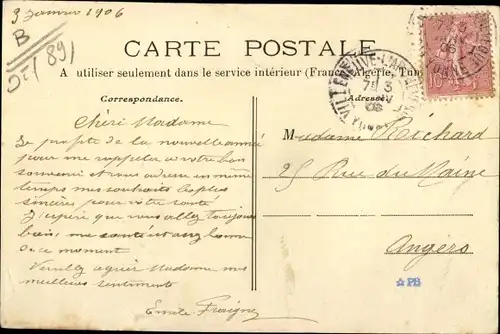 3 Janvier 1906
B
De (89)
CARTE POSTALE
A utiliser seulement dans le service intérieur (France, Algérie, Tun
Correspondance.
Adresse
VILLENEUVE-L'ARCHEVÊQUE
7 3
JANV
06
YONNE
Chère Madame
Je profite de la nouvelle année
pour me rappeler à votre bon
souvenir et vous adresse en même
temps mes souhaits les plus
sincères pour votre santé
J'espère que vous allez toujours
bien, ma santé est assez bonne
en ce moment
Veuillez agréer Madame mes
meilleurs sentiments
Emile
Madame Richard
25 Rue du Maine
Angers
PB